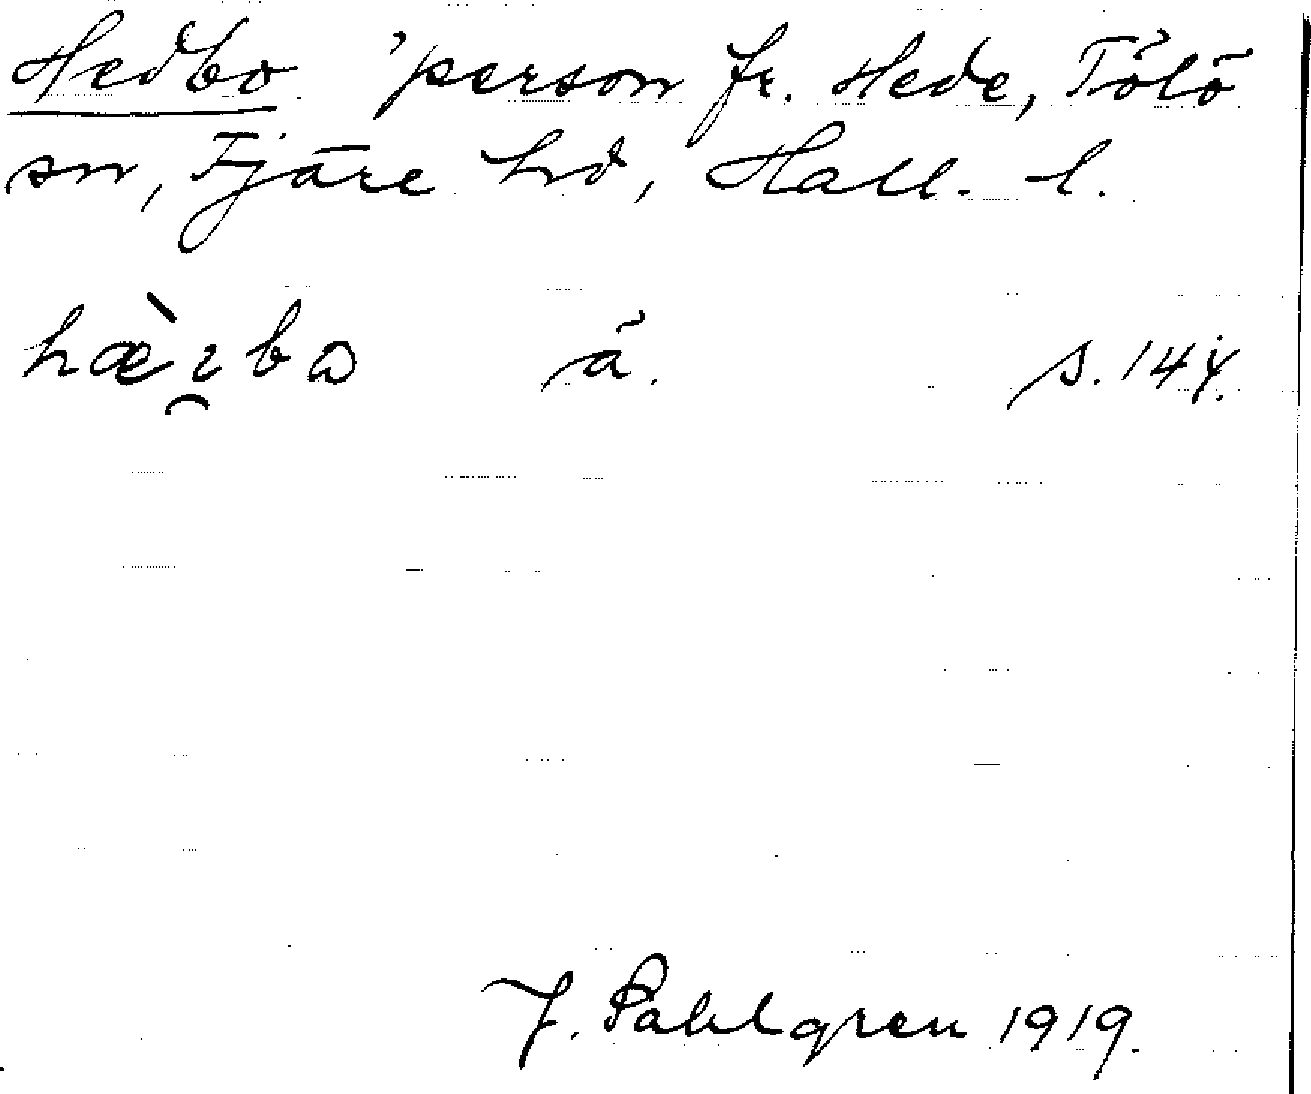 Hedbo 'person fr. Hede, Tölö
sn, Fjäre hd, Hall. l.
å. s. 147.
J. Sahlgren 1919.